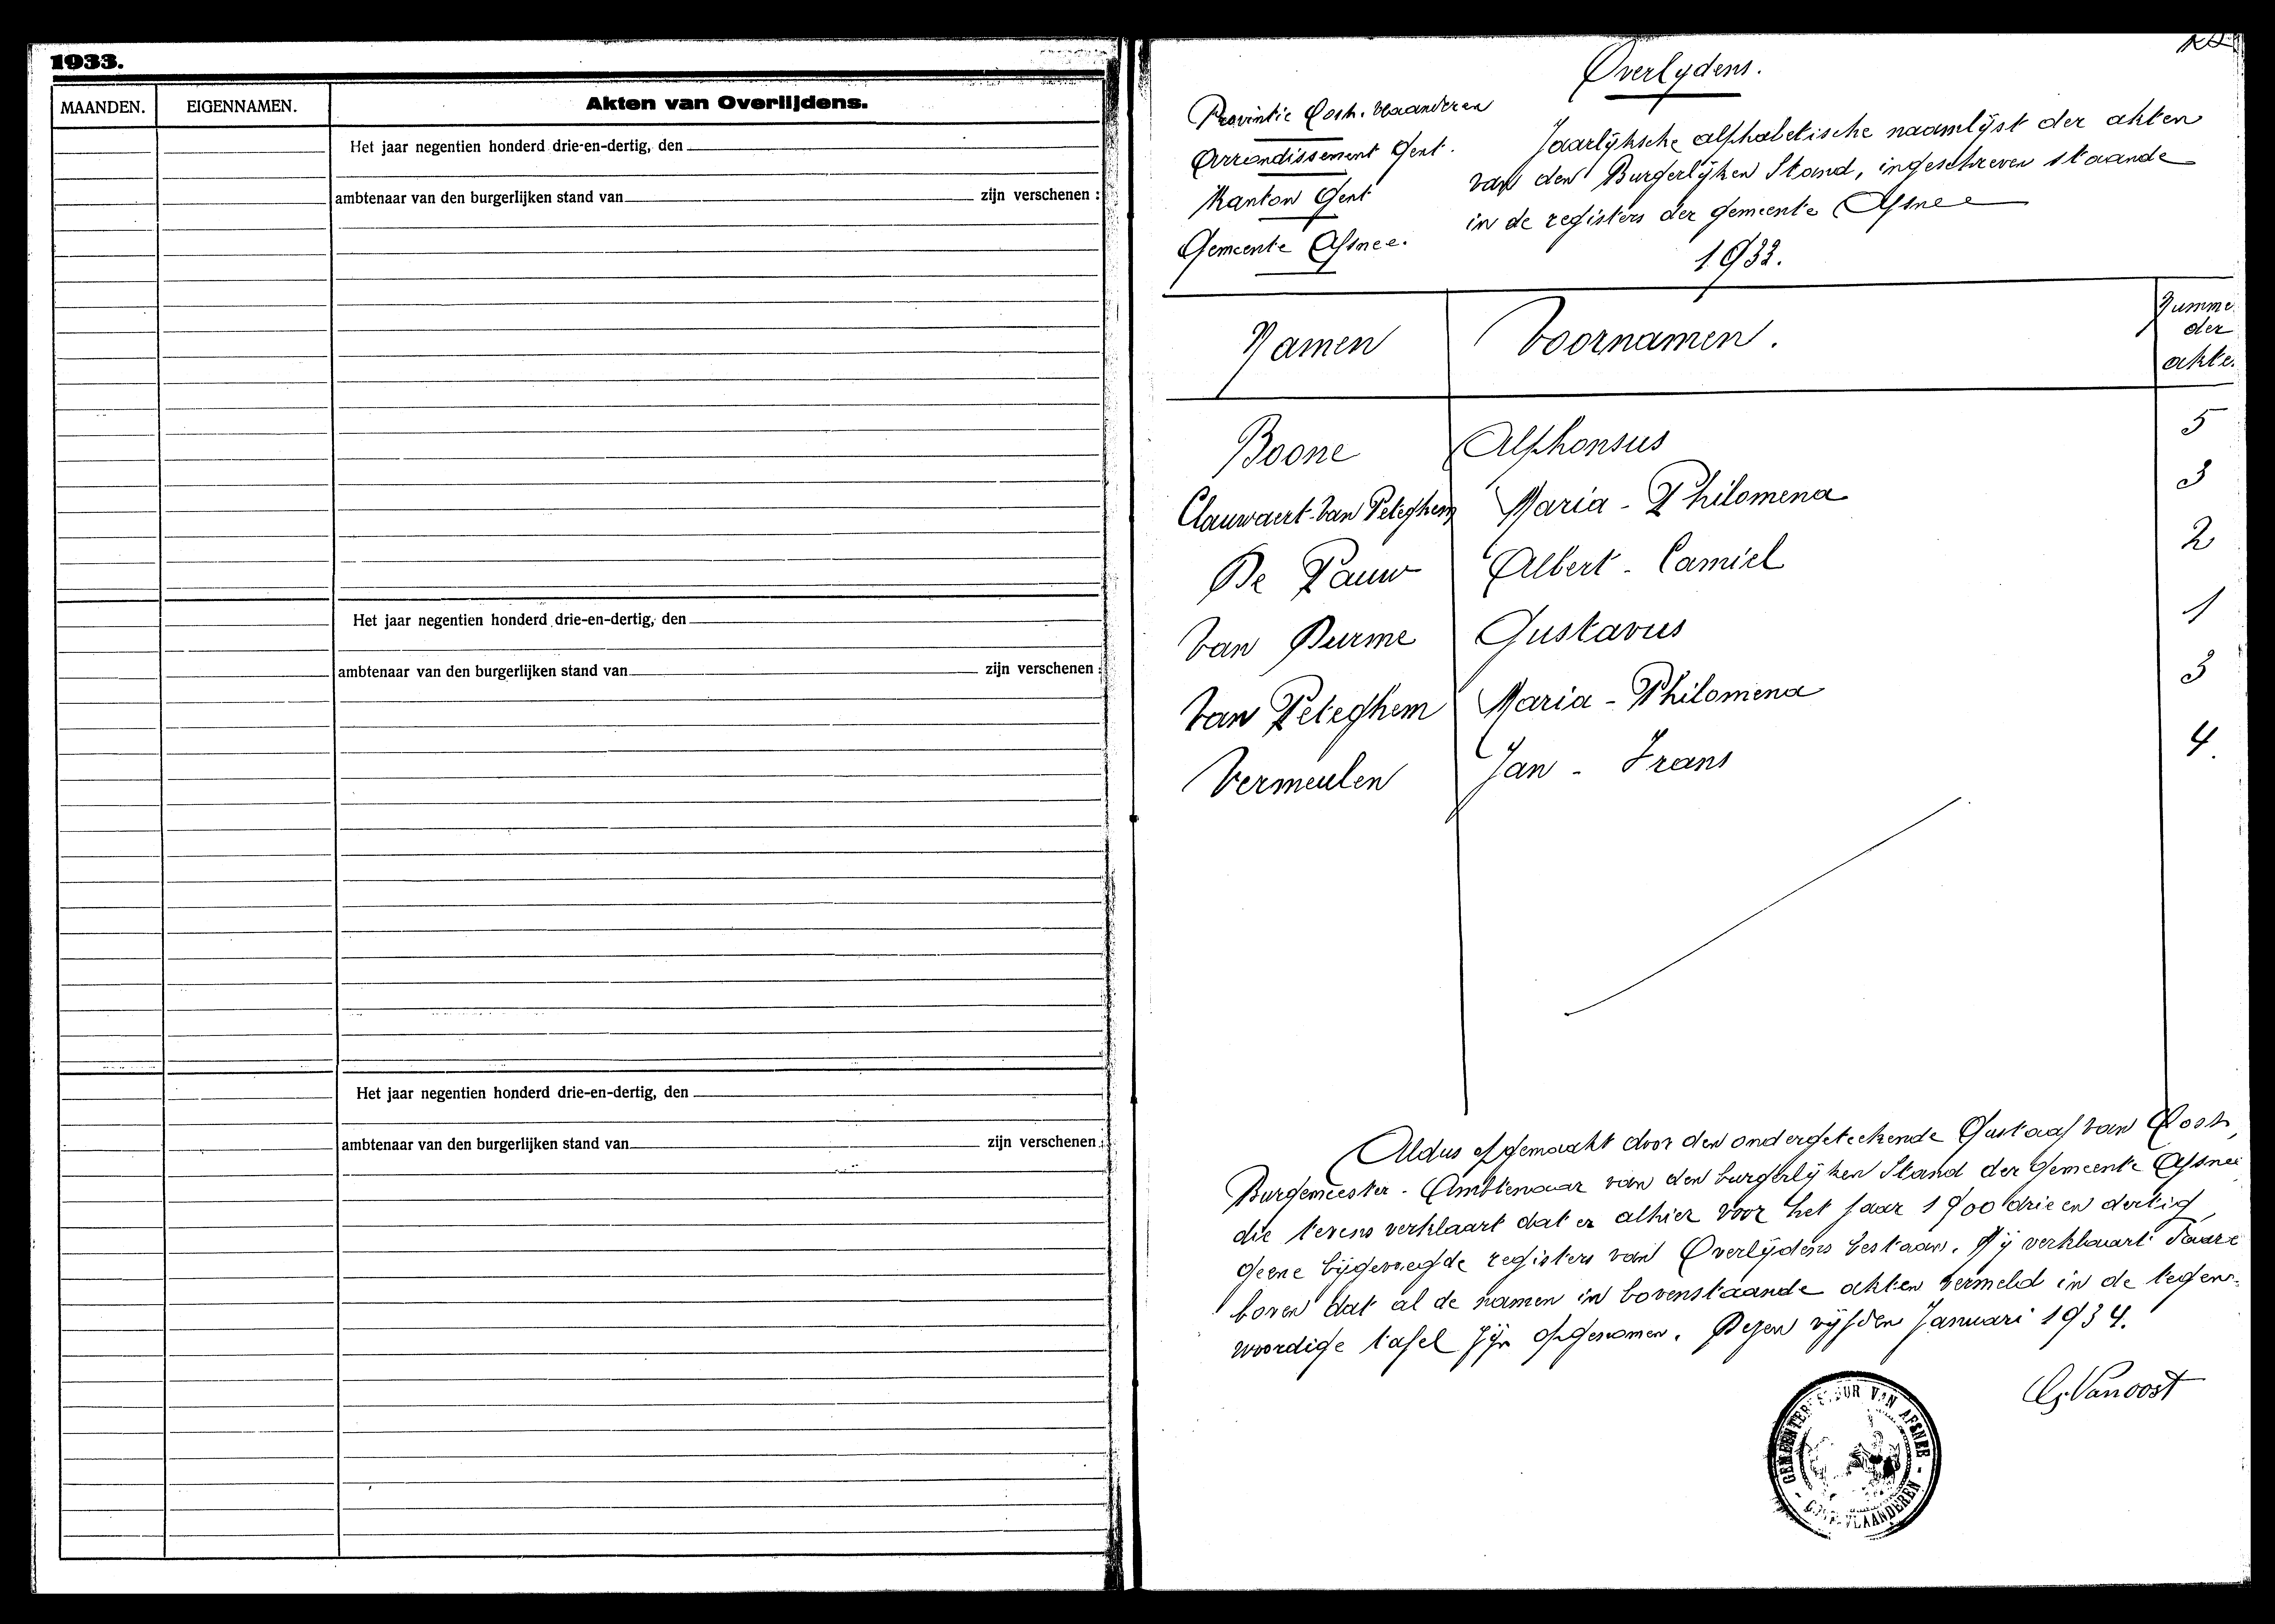 1933.
MAANDEN.
EIGENNAMEN.
Akten van Overlijdens.
Het jaar negentien honderd drie-en-dertig, den
ambtenaar van den burgerlijken stand van
zijn verschenen :
Het jaar negentien honderd drie-en-dertig, den
ambtenaar van den burgerlijken stand van
zijn verschenen :
Het jaar negentien honderd drie-en-dertig, den
ambtenaar van den burgerlijken stand van
zijn verschenen :
Overlydens.
Provintie Oost. Vlaanderen
Arrondissement Gent.
Kanton Gent
Gemeente Afsnee.
Jaarlyksche alphabetische naamlyst der akten
van den Burgerlyken Stand, ingeschreven staande
in de registers der gemeente Afsnee
1933.
Namen
Voornamen.
Numme
der
akte.
Boone Alphonsus 5
Clauwaert-Van Peteghem Maria - Philomena 3
De Pauw Albert - Camiel 2
Van Durme Gustavus 1
Van Peteghem Maria - Philomena 3
Vermeulen Jan - Frans 4.
Aldus opgemaakt door den ondergeteekende Gustaaf Van Oost,
Burgemeester - Ambtenaar van den burgerlyken Stand der gemeente Afsnee
die tevens verklaart dat er alhier voor het jaar 1900 drie en dertig,
geene bijgevoegde registers van Overlydens bestaan. Hij verklaart daare
boven dat al de namen in bovenstaande akten vermeld in de tegen-
woordige tafel zyn opgenomen. Dezen vyfden Januari 1934.
G. Vanoost
GEMEENTEBESTUUR VAN AFSNEE
- OOST-VLAANDEREN -